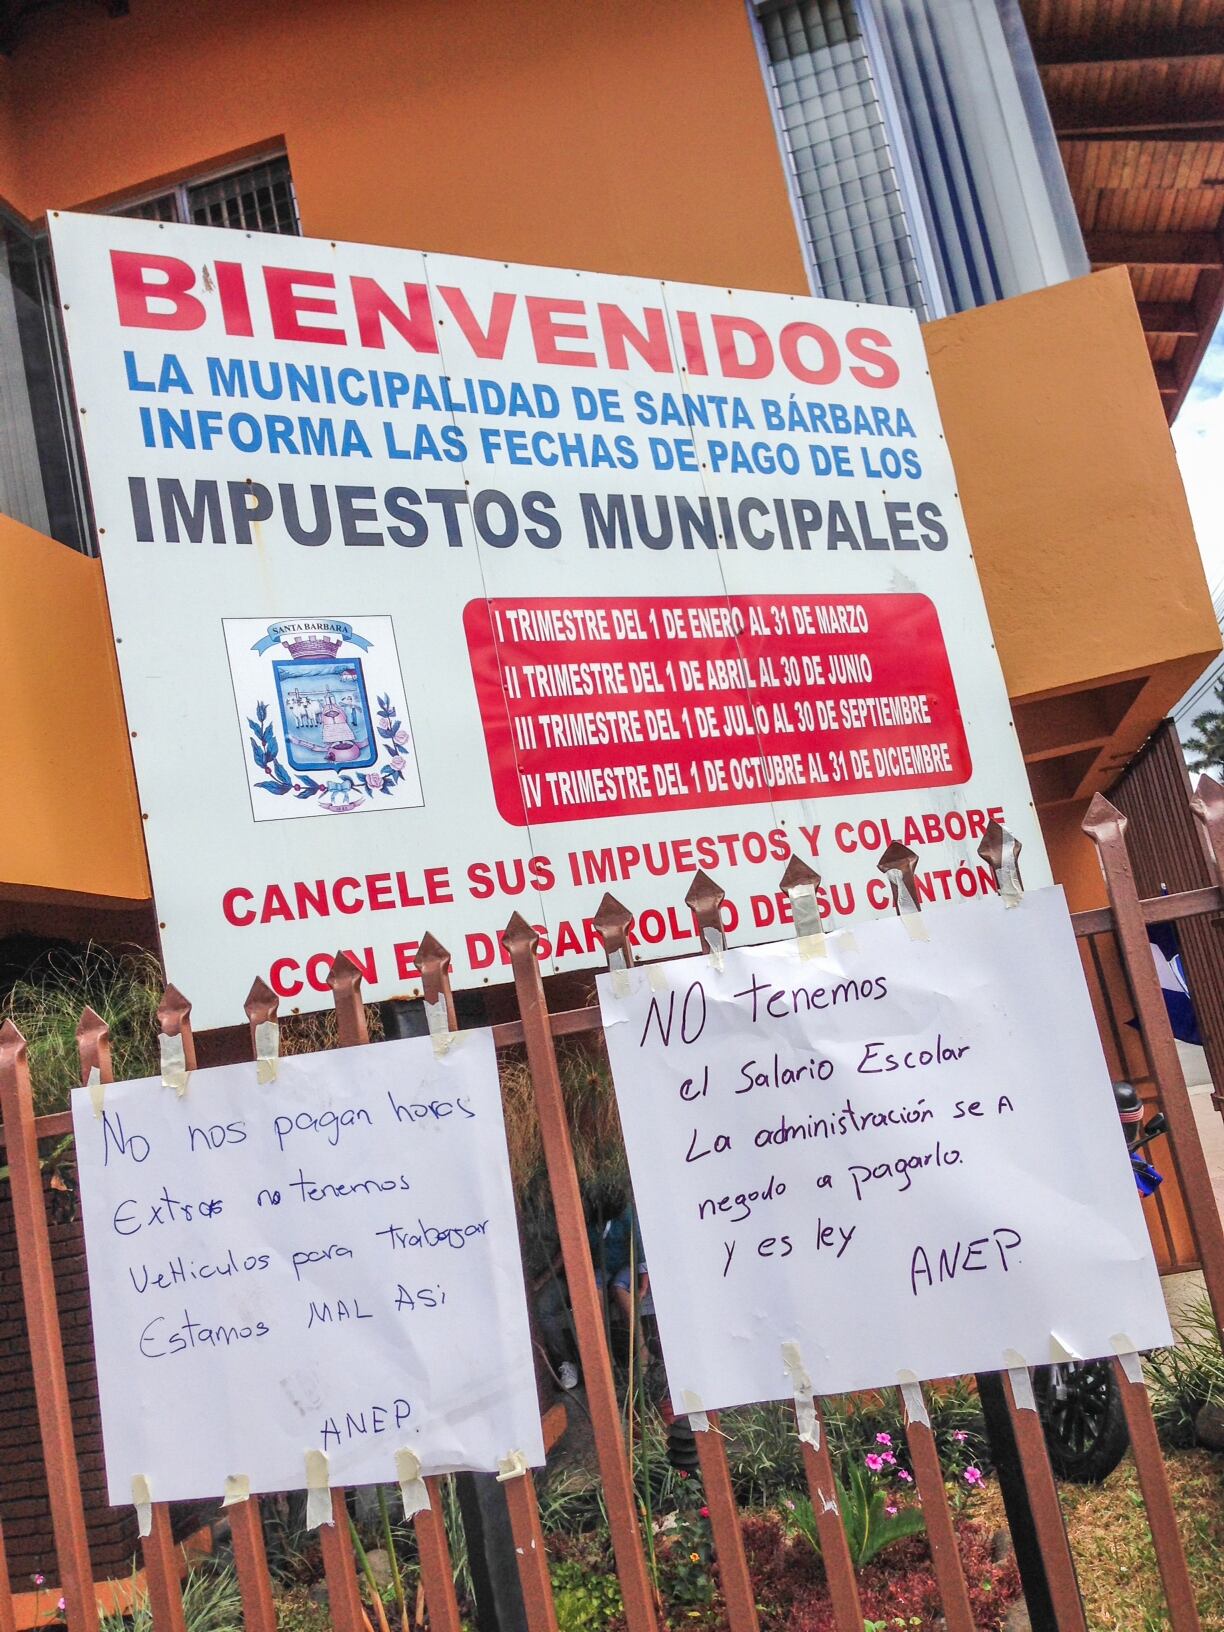 BIENVENIDOS
LA MUNICIPALIDAD DE SANTA BÁRBARA
INFORMA LAS FECHAS DE PAGO DE LOS
IMPUESTOS MUNICIPALES
SANTA BARBARA
I TRIMESTRE DEL 1 DE ENERO AL 31 DE MARZO
II TRIMESTRE DEL 1 DE ABRIL AL 30 DE JUNIO
III TRIMESTRE DEL 1 DE JULIO AL 30 DE SEPTIEMBRE
IV TRIMESTRE DEL 1 DE OCTUBRE AL 31 DE DICIEMBRE
CANCELE SUS IMPUESTOS Y COLABORE
CON EL DESARROLLO DE SU CANTÓN
No nos pagan horas
Extras no tenemos
Vehiculos para trabajar
Estamos MAL ASi
ANEP.
NO tenemos
el Salario Escolar
La administración se A
negado a pagarlo.
y es ley
ANEP.